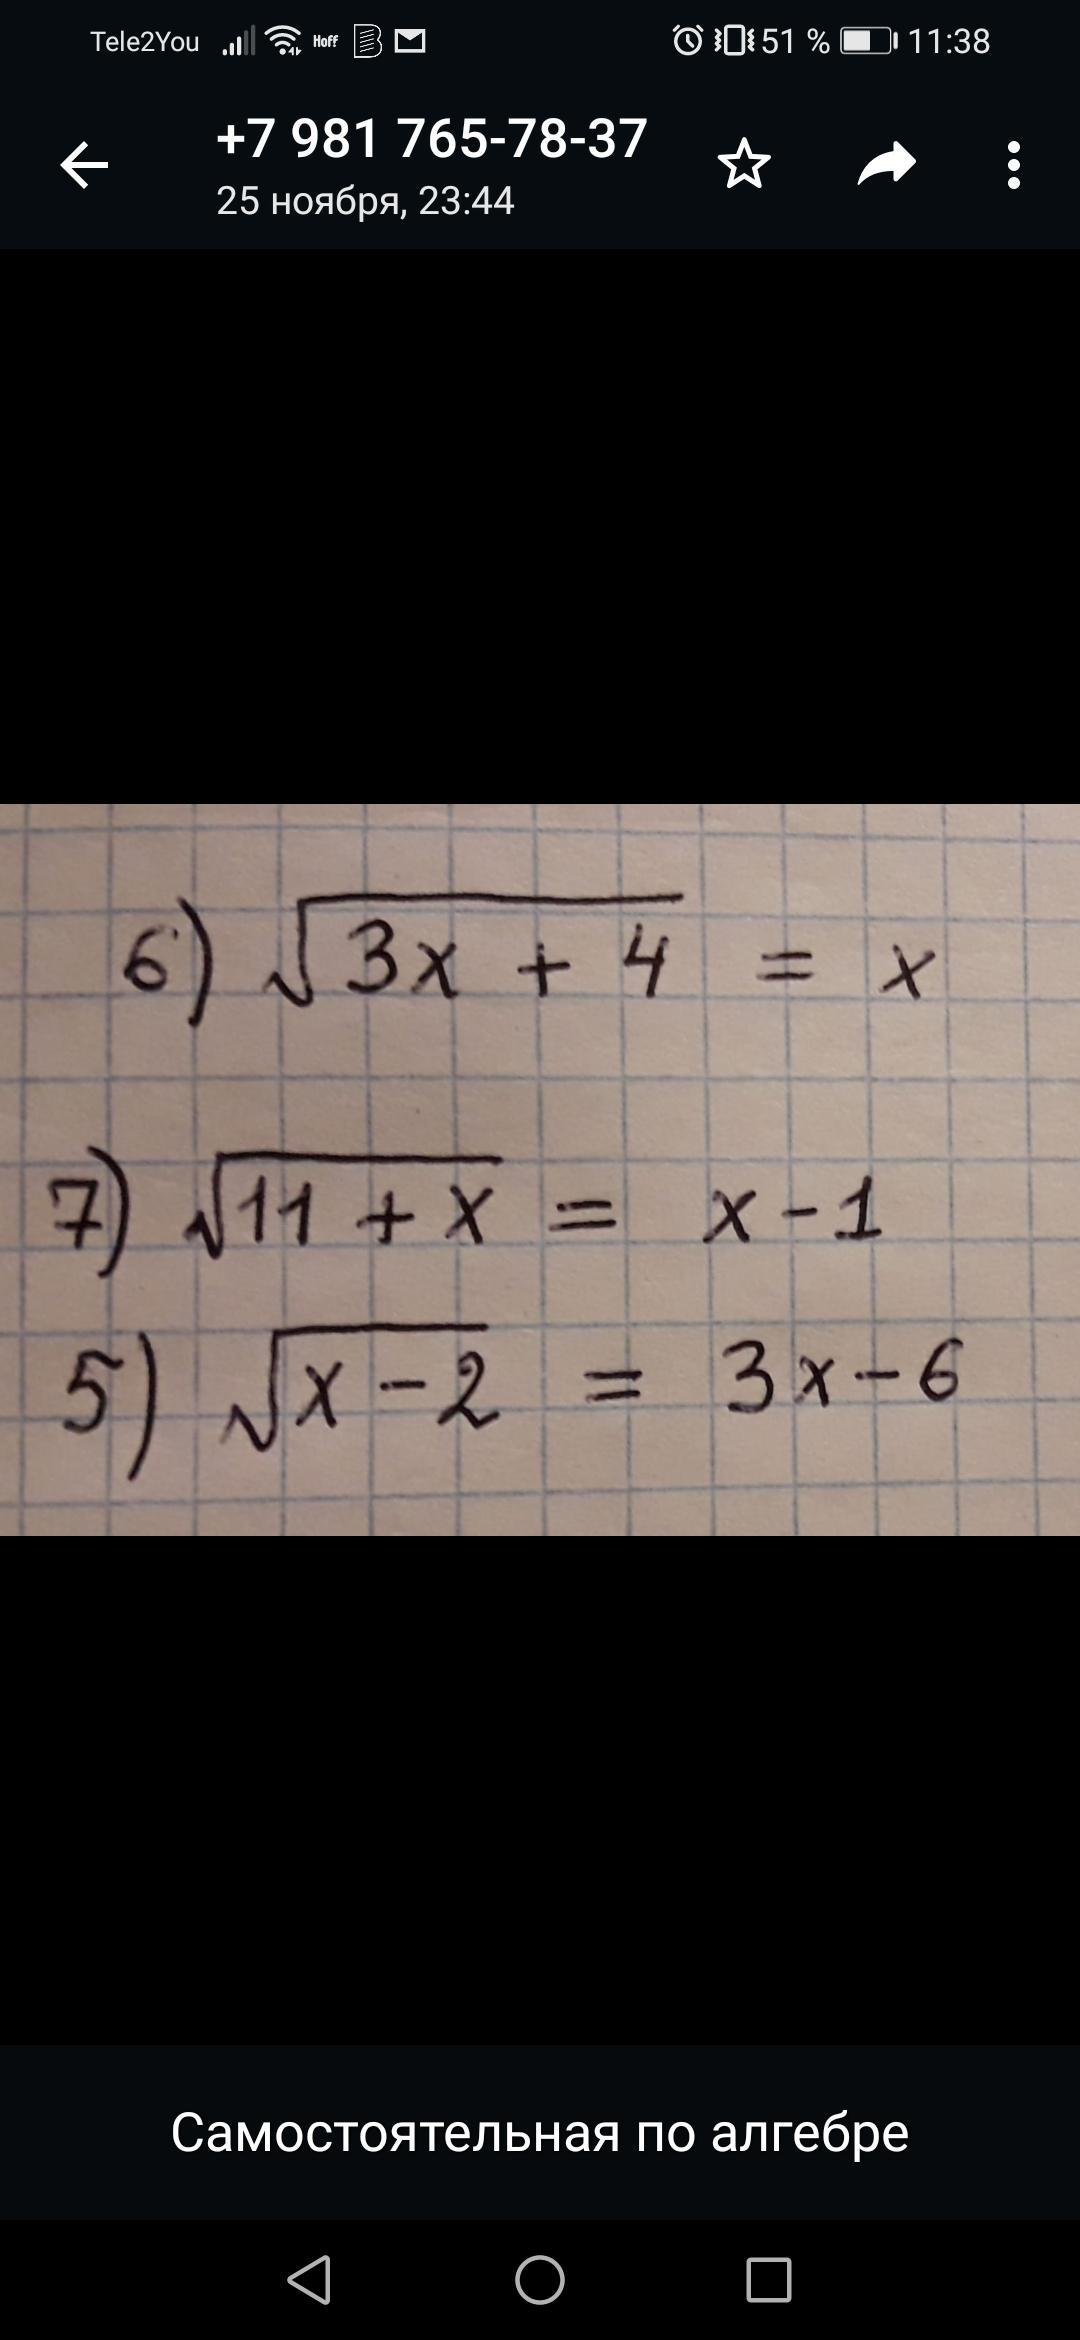 Tele2You Hoff 51 % 11:38
+7 981 765-78-37
25 ноября, 23:44
6) √3x + 4 = x
7) √11 + x = x - 1
5) √x - 2 = 3x - 6
Самостоятельная по алгебре